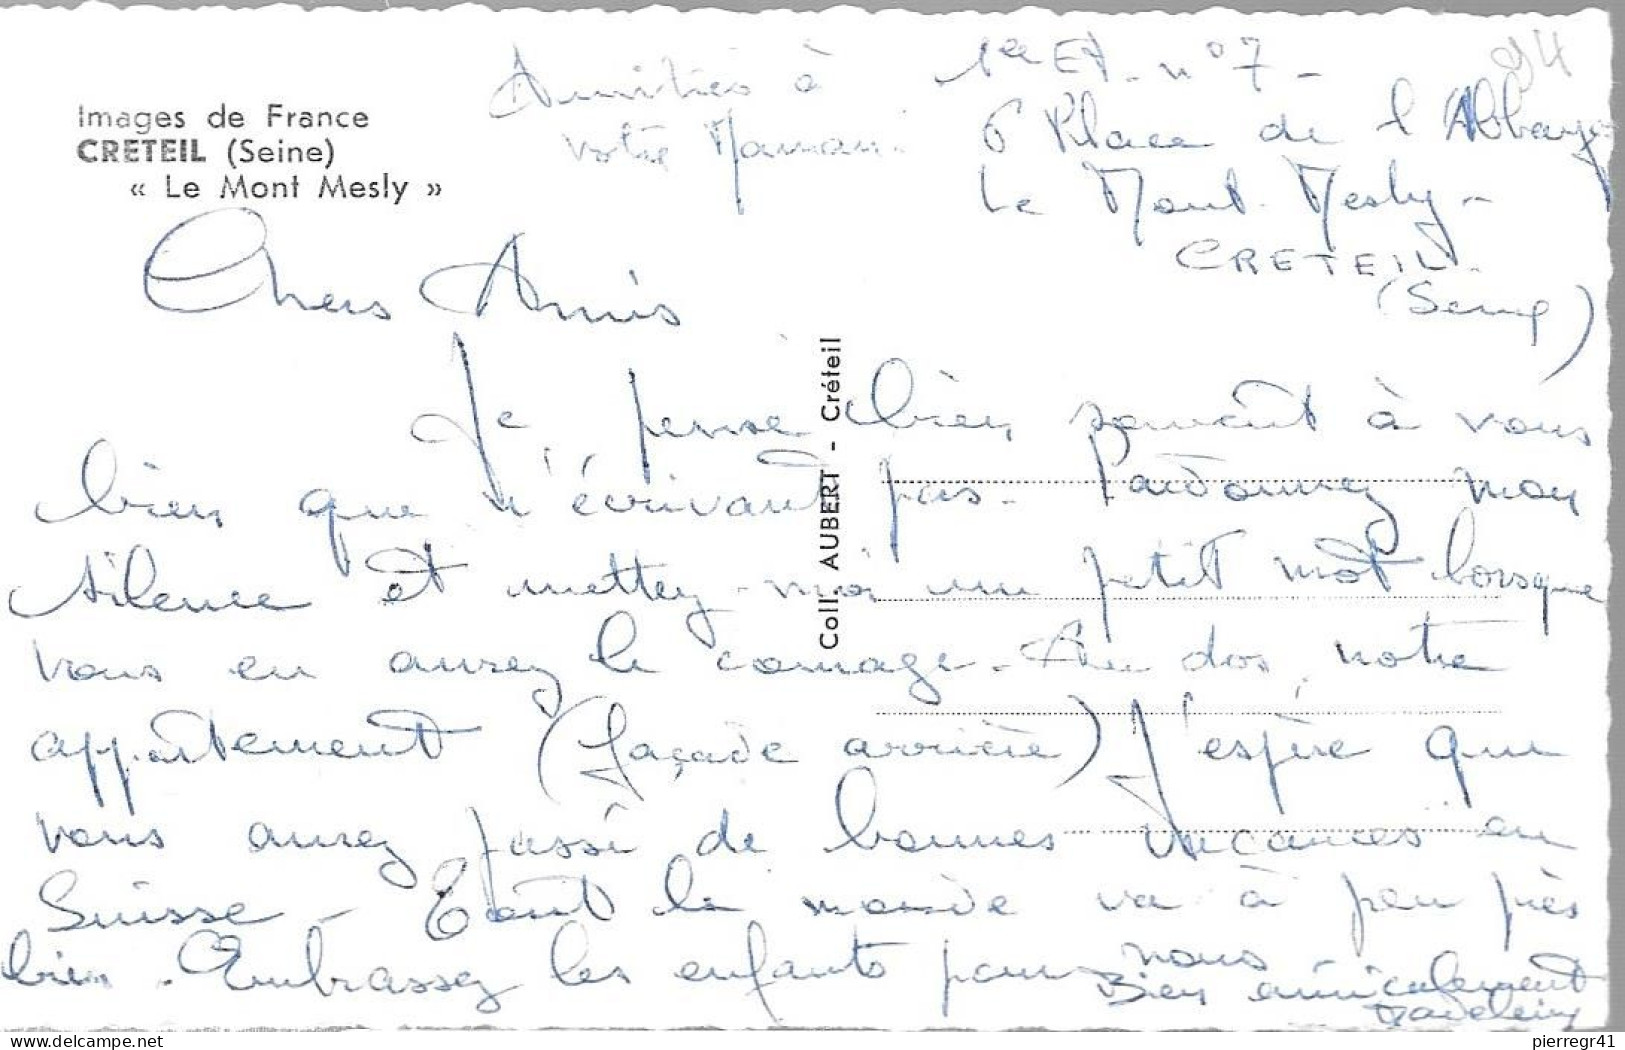 Images de France
CRETEIL (Seine)
« Le Mont Mesly »
Amitiés à
votre Maman.
1er Et. n° 7 -
6 Place de l'Abbaye
Le Mont-Mesly -
CRETEIL -
(Seine)
94
Chers Amis
Je pense bien souvent à vous
bien que n'écrivant pas. Pardonnez mon
silence et mettez-moi un petit mot lorsque
vous en aurez le courage. Au dos, notre
appartement (façade arrière) J'espère que
vous aurez passé de bonnes vacances en
Suisse - Tout le monde va à peu près
bien. Embrassez les enfants pour nous
Bien amicalement
Madeleine
Coll. AUBERT - Créteil
delcampe.net
pierregr41